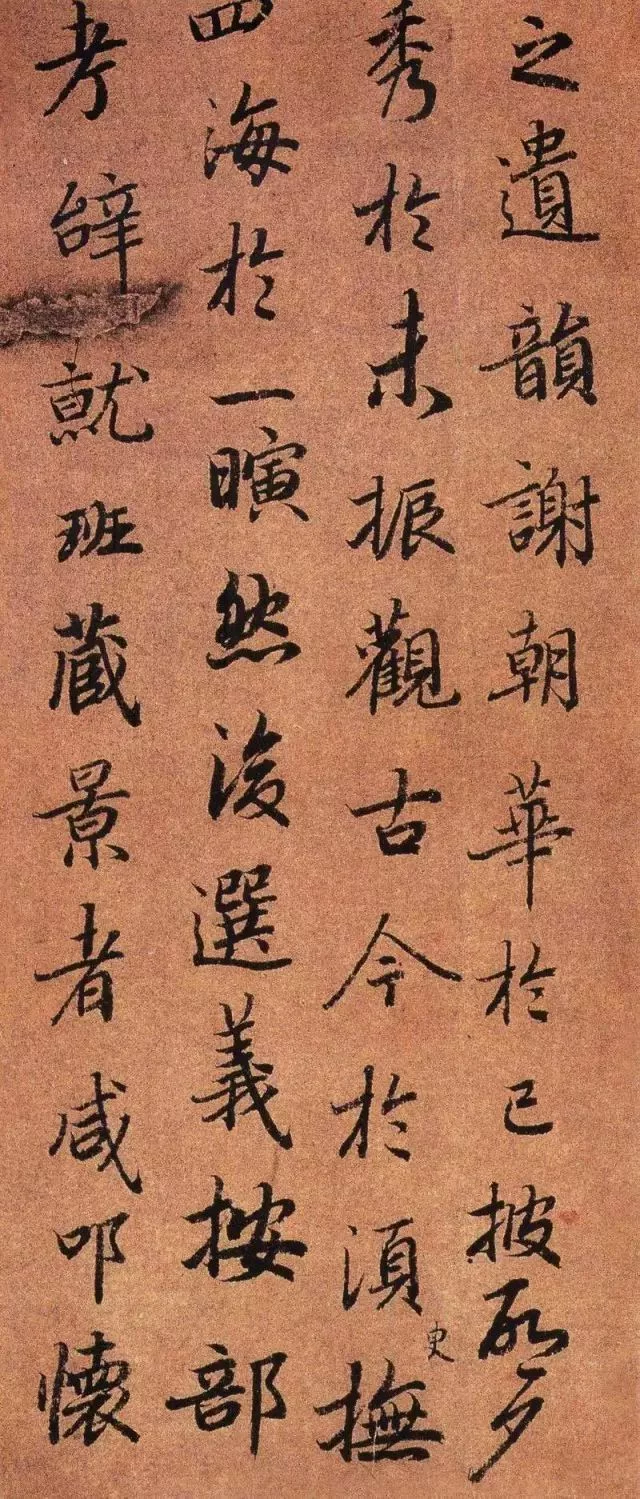 之遺韻謝朝華於已披啓夕
秀於未振觀古今於須臾撫
四海於一瞚然後選義按部
考辭就班藏景者咸叩懷